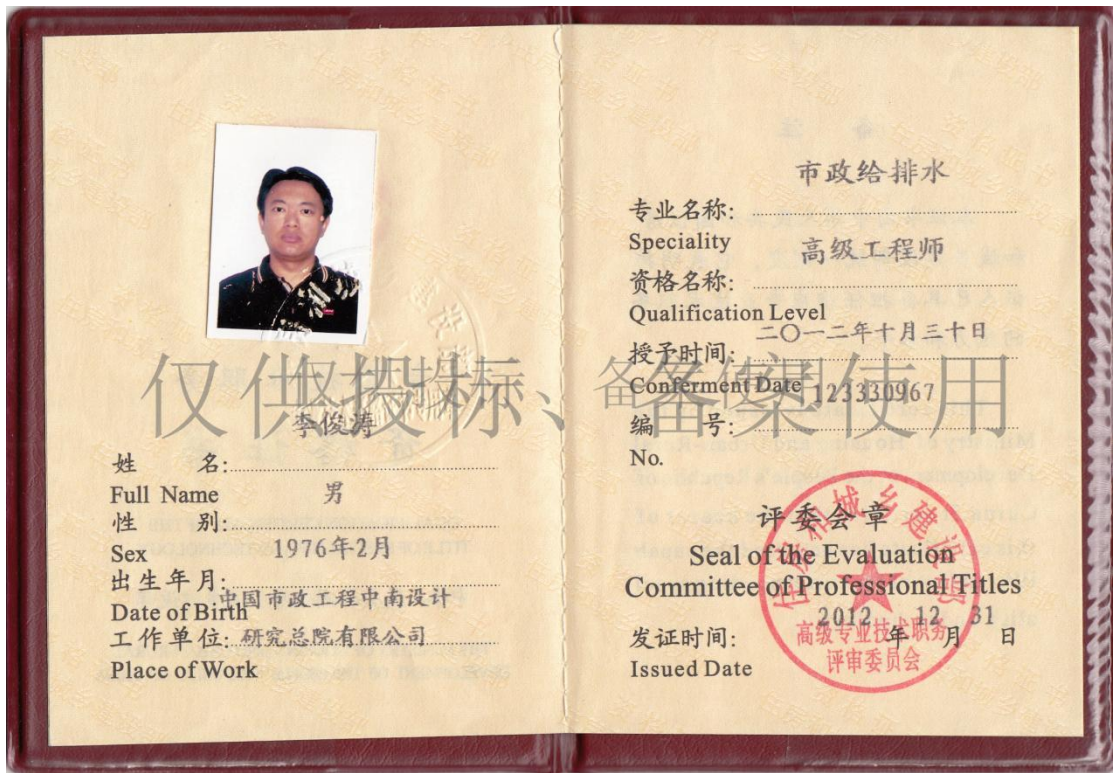 李俊涛
姓 名:
Full Name
男
性 别:
Sex
1976年2月
出生年月:
Date of Birth
中国市政工程中南设计
工作单位: 研究总院有限公司
Place of Work
市政给排水
专业名称:
Speciality
高级工程师
资格名称:
Qualification Level
二〇一二年十月三十日
授予时间:
Conferment Date
123330967
编 号:
No.
评委会章
Seal of the Evaluation
Committee of Professional Titles
2012 12 31
发证时间: 年 月 日
Issued Date
住房和城乡建设部
高级专业技术职务
评审委员会
仅供投标、备案使用